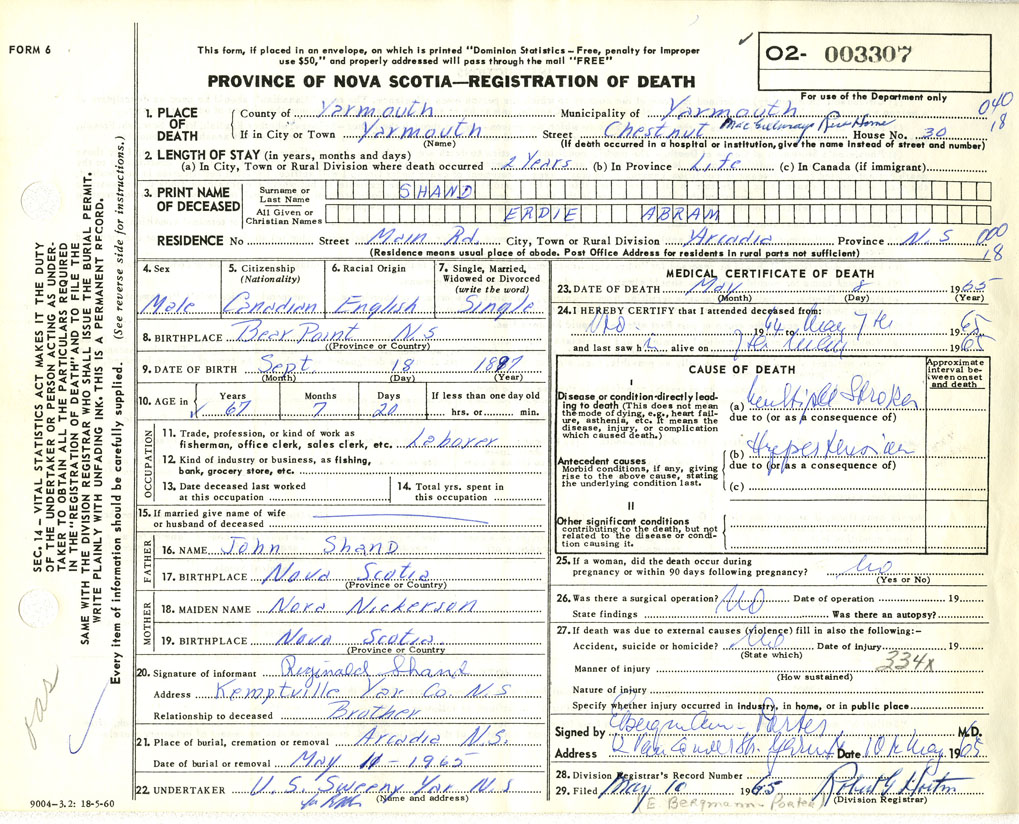 FORM 6
This form, if placed in an envelope, on which is printed "Dominion Statistics – Free, penalty for improper
use $50," and properly addressed will pass through the mail "FREE"
PROVINCE OF NOVA SCOTIA—REGISTRATION OF DEATH
O2- 003307
For use of the Department only
SEC. 14 – VITAL STATISTICS ACT MAKES IT THE DUTY
OF THE UNDERTAKER OR PERSON ACTING AS UNDER-
TAKER TO OBTAIN ALL THE PARTICULARS REQUIRED
IN THE "REGISTRATION OF DEATH" AND TO FILE THE
SAME WITH THE DIVISION REGISTRAR WHO SHALL ISSUE THE BURIAL PERMIT.
WRITE PLAINLY WITH UNFADING INK. THIS IS A PERMANENT RECORD.
Every item of information should be carefully supplied. (See reverse side for instructions.)
1. PLACE OF DEATH
County of Yarmouth Municipality of Yarmouth 040
If in City or Town Yarmouth Street Chestnut House No. 30 18
(Name) (If death occurred in a hospital or institution, give the name instead of street and number)
2. LENGTH OF STAY (in years, months and days)
(a) In City, Town or Rural Division where death occurred 2 Years (b) In Province Life (c) In Canada (if immigrant)
3. PRINT NAME OF DECEASED
Surname or Last Name SHAND
All Given or Christian Names ERDIE ABRAM
RESIDENCE No Street Main Rd. City, Town or Rural Division Arcadia Province N.S 000
(Residence means usual place of abode. Post Office Address for residents in rural parts not sufficient) 18
4. Sex Male
5. Citizenship (Nationality) Canadian
6. Racial Origin English
7. Single, Married, Widowed or Divorced (write the word) Single
8. BIRTHPLACE Bear Point N.S
(Province or Country)
9. DATE OF BIRTH Sept 18 1897
(Month) (Day) (Year)
10. AGE in Years 67 Months 7 Days 20 If less than one day old
hrs. or min.
OCCUPATION
11. Trade, profession, or kind of work as
fisherman, office clerk, sales clerk, etc. Laborer
12. Kind of industry or business, as fishing,
bank, grocery store, etc.
13. Date deceased last worked
at this occupation
14. Total yrs. spent in
this occupation
15. If married give name of wife
or husband of deceased
FATHER
16. NAME John Shand
17. BIRTHPLACE Nova Scotia
(Province or Country)
MOTHER
18. MAIDEN NAME Nora Nickerson
19. BIRTHPLACE Nova Scotia
(Province or Country
20. Signature of informant Reginald Shand
Address Kemptville Yar Co. N.S
Relationship to deceased Brother
21. Place of burial, cremation or removal Arcadia N.S.
Date of burial or removal May 11 - 1965
22. UNDERTAKER V. S. Sweeny Yar N.S
(Name and address)
9004-3.2: 18-5-60
MEDICAL CERTIFICATE OF DEATH
23. DATE OF DEATH May 8 1965
(Month) (Day) (Year)
24. I HEREBY CERTIFY that I attended deceased from:
1964 to May 7th 1965
and last saw h alive on 7th May 1965
CAUSE OF DEATH
Approximate interval between onset and death
I
Disease or condition directly lead-
ing to death (This does not mean
the mode of dying, e.g., heart fail-
ure, asthenia, etc. It means the
disease, injury, or complication
which caused death.)
(a) Multiple Strokes
due to (or as a consequence of)
Antecedent causes
Morbid conditions, if any, giving
rise to the above cause, stating
the underlying condition last.
(b) Hypertension
due to (or as a consequence of)
(c)
II
Other significant conditions
contributing to the death, but not
related to the disease or condi-
tion causing it.
25. If a woman, did the death occur during
pregnancy or within 90 days following pregnancy? No
(Yes or No)
26. Was there a surgical operation? No Date of operation 19
State findings Was there an autopsy?
27. If death was due to external causes (violence) fill in also the following:–
Accident, suicide or homicide? No Date of injury 19
(State which) 334x
Manner of injury
(How sustained)
Nature of injury
Specify whether injury occurred in industry, in home, or in public place
Signed by Bergmann-Porter M.D.
Address Date 10th May 1965
28. Division Registrar's Record Number 6
29. Filed May 10 1965 Robert G Horton
(Division Registrar)
E Bergmann-Porter